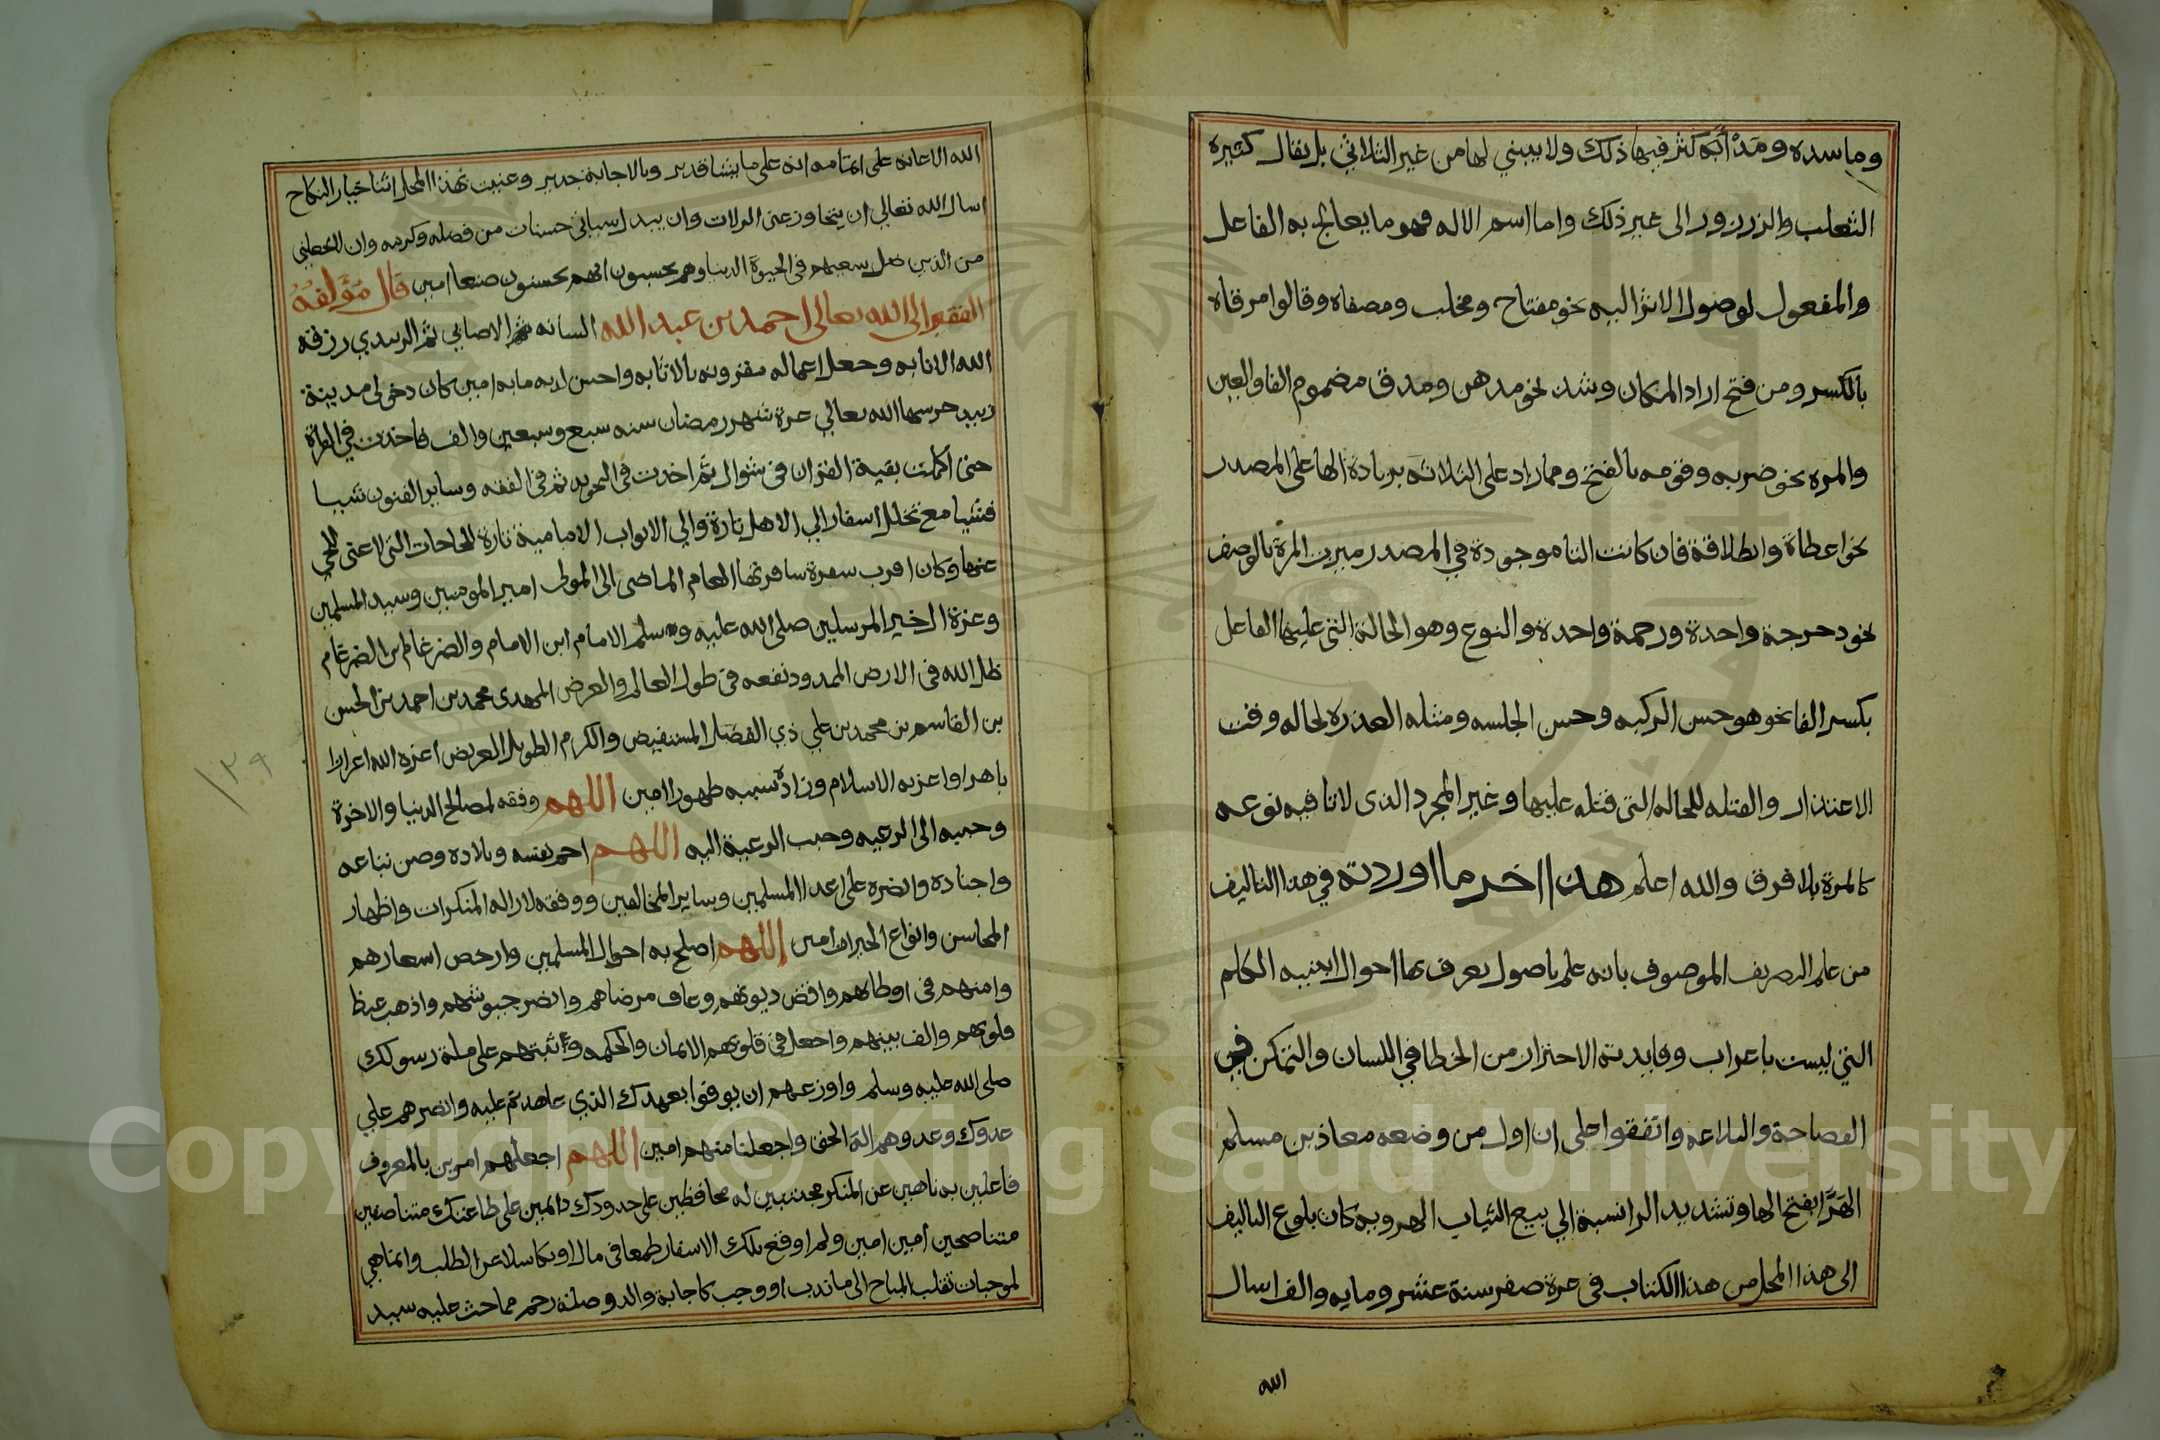 وماسده ومَدْأَبَه كثر فيها ذلك ولا يبنى لها من غير الثلاثي بل يقال كثيرة
الثعلب والزرزور الى غير ذلك واما اسم الاله فهو ما يعالج به الفاعل
والمفعول لوصول الاثر اليه نحو مفتاح ومخلب ومصفاه وقالوا مرقاة
بالكسر ومن فتح اراد المكان وشذ نحو مدهن ومدق مضموم الفا والعين
والمره نحو ضربه وقومه بالفتح ومما زاد على الثلاثه بزيادة الها على المصدر
نحو اعطاة وانطلاقة فان كانت التا موجودة في المصدر ميزت المرة بالوصف
نحو دحرجة واحدة ورحمة واحدة والنوع وهو الحالة التي عليها الفاعل
بكسر الفا نحو هو حسن الركبه وحسن الجلسه ومثله العذره لحاله وقت
الاعتذار والقتله للحاله التي قتله عليها وغير المجرد الذى لا تا فيه نوعه
كالمرة بلا فرق والله اعلم هذا اخر ما اوردته في هذا التاليف
من علم التصريف الموصوف بانه علم باصول يعرف بها احوال ابنيه الكلم
التي ليست باعراب وفايدته الاحتراز من الخطا في اللسان والتمكن في
الفصاحة والبلاغه واتفقوا على ان اول من وضعه معاذ بن مسلم
الهَرَّا بفتح الها وتشديد الرا نسبة الى بيع الثياب الهروية كان بلوغ التاليف
الى هذا المحل من هذا الكتاب فى غرة صفر سنة عشر ومايه والف اسال
الله
الله الاعانه على اتمامه انه على ما يشا قدير وبالاجابة جدير وعنيت بهذا المحل اثنا خيار النكاح
اسال الله تعالى ان يتجاوز عنى الزلات وان يبدل سياتى حسنات من فضله وكرمه وان لا يجعلني
من الذين ضل سعيهم فى الحيوة الدنيا وهم يحسبون انهم يحسنون صنعا امين قال مؤلفه
الفقير الى الله تعالى احمد بن عبد الله السانه ثم الاصابي ثم الزبيدي رزقه
الله الانابه وجعل اعماله مقرونه بالاثابه واحسن اليه مابه امين كان دخولى مدينة
زبيد حرسها الله تعالى غرة شهر رمضان سنه سبع وسبعين والف فاخذت في القراة
حتى اكملت بقية القران فى شوال ثم اخذت فى التجويد ثم فى الفقه وساير الفنون شيا
فشيا مع تخلل اسفار الى الاهل تارة والى الابواب الامامية تارة للحاجات التى لا غنى لي
عنها وكان اقرب سفرة سافرتها العام الماضى الى المولى امير المومنين وسيد المسلمين
وعزة ال خير المرسلين صلى الله عليه وسلم الامام ابن الامام والضرغام ابن الضرغام
ظل الله فى الارض الممدود نفعه فى طول العالم والعرض المهدى محمد بن احمد بن الحسن
بن القاسم بن محمد بن علي ذي الفضل المستفيض والكرم الطويل العريض اعزه الله اعزازا
باهرا واعز به الاسلام وزاده سببه ظهورا امين اللهم وفقه لمصالح الدنيا والاخرة
وحببه الى الرعيه وحبب الرعية اليه اللهم احم نفسه وبلاده وصن تباعه
واجناده وانصره على اعدا المسلمين وساير المخالفين ووفقه لازاله المنكرات واظهار
المحاسن وانواع الخيرات امين اللهم اصلح به احوال المسلمين وارخص اسعارهم
وامنهم فى اوطانهم واقض ديونهم وعاف مرضاهم وانصر جيوشهم واذهب غيظ
قلوبهم والف بينهم واجعل فى قلوبهم الايمان والحكمه وثبتهم على ملة رسولك
صلى الله عليه وسلم واوزعهم ان يوفوا بعهدك الذي عاهدتم عليه وانصرهم علي
عدوك وعدوهم اله الحق واجعلنا منهم امين اللهم اجعلهم امرين بالمعروف
فاعلين به ناهين عن المنكر مجتنبين له محافظين على حدودك دائمين على طاعتك متناصفين
متناصحين امين امين ولم اوقع تلك الاسفار طمعا فى مال او تكاسلا عن الطلب وانما هي
لموجبات تقلب المباح الى ما ندب او وجب كاجابة والد وصلة رحم مما حث عليه سيد
١٣٩
Copyright © King Saud University